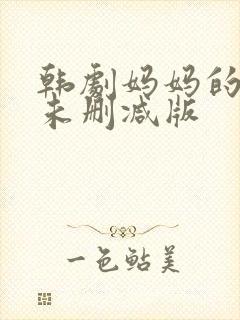 韩剧妈妈的
未删减版
一色鲇美